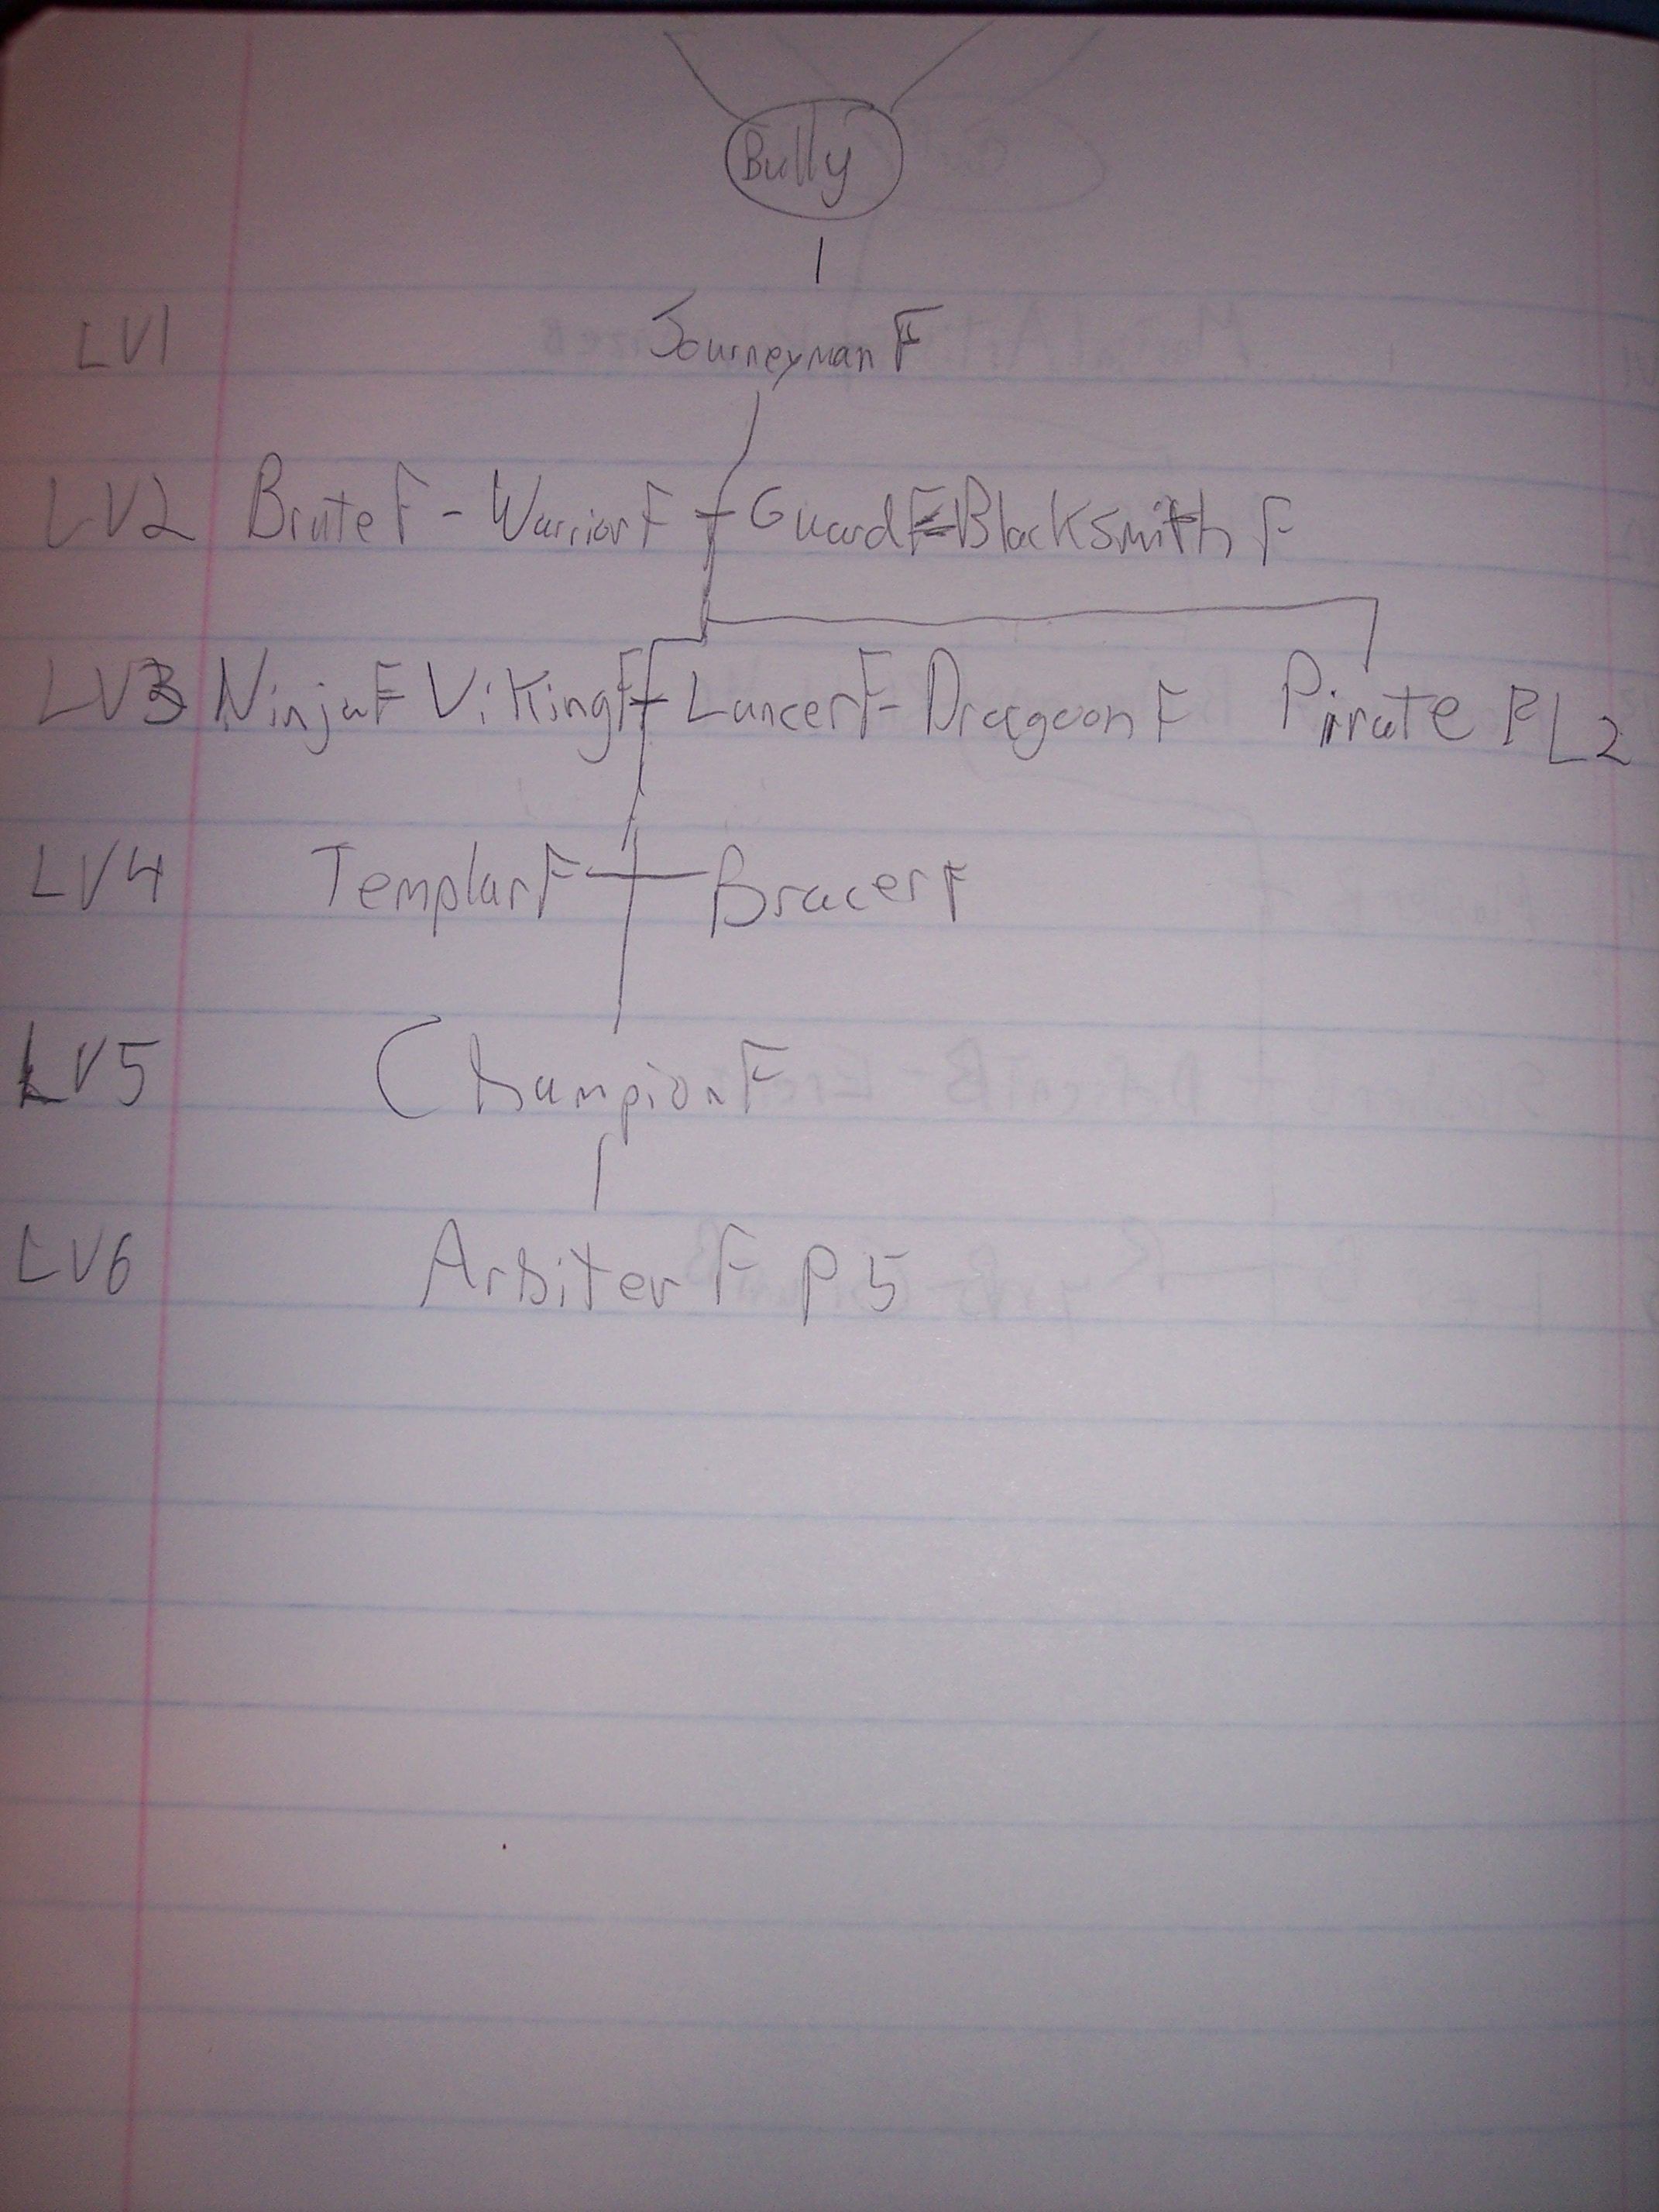 Bully
LV1 Journeyman F
LV2 Brute F - Warrior F - Guard F - Blacksmith F
LV3 Ninja F Viking F - Lancer F - Dragoon F Pirate F L2
LV4 Templar F - Bracer F
LV5 Champion F
LV6 Arbiter F P5